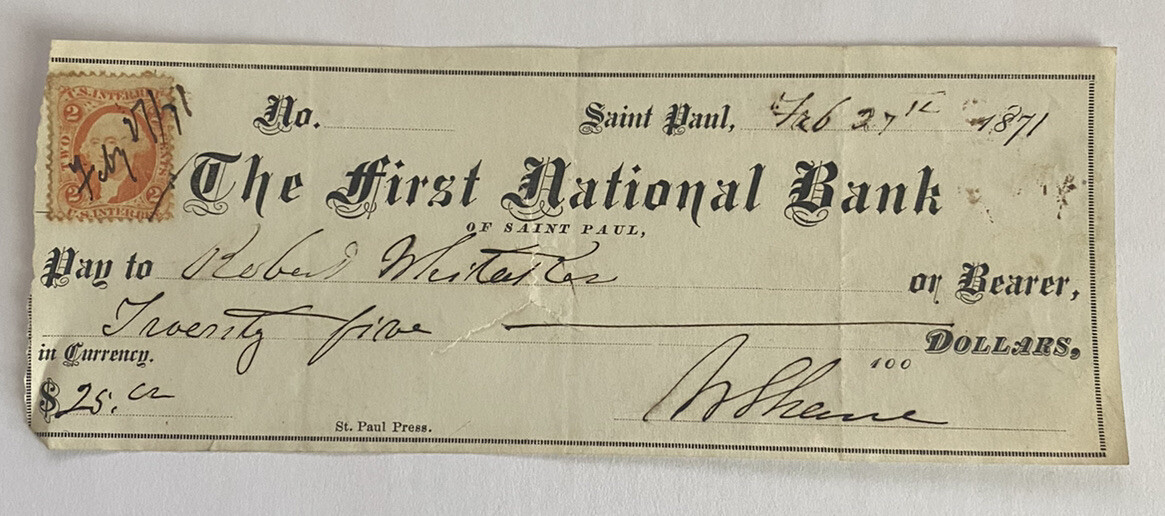 U.S. INTER. REV.
2
TWO CENTS
2 2
U.S. INTER. REV.
Feby 27/71
No. Saint Paul, Feb 27th 1871
The First National Bank
OF SAINT PAUL,
Pay to Robert Whitaker or Bearer,
Twenty five DOLLARS,
in Currency. 100
$ 25.
St. Paul Press.